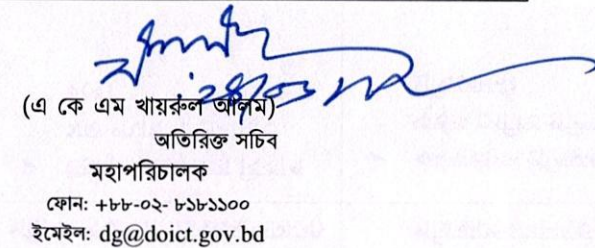 (এ কে এম খায়রুল আলম)
অতিরিক্ত সচিব
মহাপরিচালক
ফোন: +৮৮-০২- ৮১৮১১০০
ইমেইল: dg@doict.gov.bd